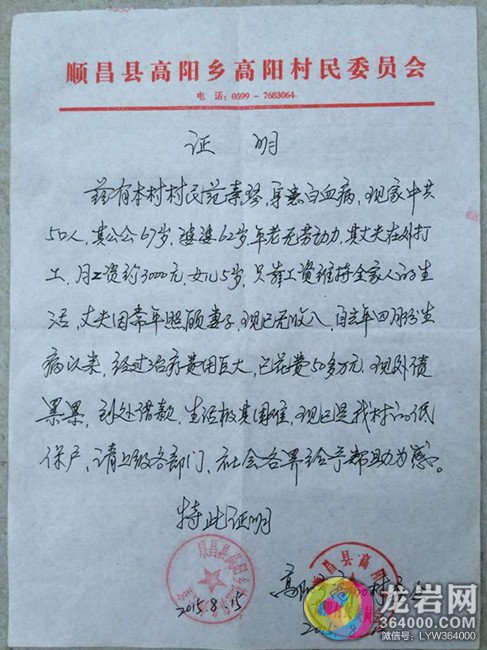 顺昌县高阳乡高阳村民委员会
电 话：0599－7683064
证 明
兹有本村村民范素琴，身患白血病，现家中共
50人，其公公67岁，婆婆62岁年老无劳动力，其丈夫在外打
工，月工资约3000元，女儿5岁，只靠工資维持全家人的生
活，丈夫因常年照顾妻子，现已无收入，自去年四月份生
病以来，经过治疗费用巨大，已花费50多万元，现外债
累累，到处借款，生活极其困难，现已是我村的低
保户，请上级各部门、社会各界给予帮助为感。
特此证明
顺昌县高阳乡
2015.8.15
高阳 村
顺昌县高阳
2015.8.
龙岩网
364000.COM
微信号：LYW364000